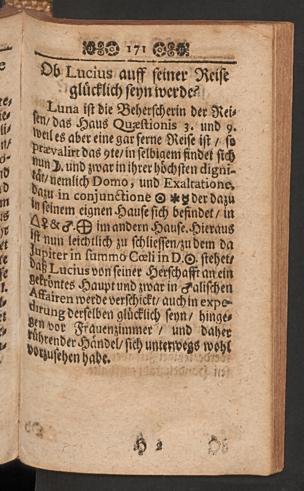 171
Ob Lucius auff seiner Reise
glücklich seyn werde?
Luna ist die Beherscherin der Rei-
sen/ das Haus Quæstionis 3. und 9.
weil es aber eine gar ferne Reise ist/ so
prævalirt das 9te/ in selbigem findet sich
nun ☽. und zwar in ihrer höchsten digni-
tät/ nemlich Domo, und Exaltatione,
dazu in conjunctione ☉ ✱ ☿ der dazu
in seinem eignen Hause sich befindet/ in
△ ♀ & ♂. ⊕ im andern Hause. Hieraus
ist nun leichtlich zu schliessen/ zu dem da
Jupiter in summo Cœli in D.☉. stehet/
daß Lucius von seiner Herschafft an ein
gekröntes Haupt und zwar in ♂alischen
Affairen werde verschickt/ auch in expe-
dirung derselben glücklich seyn/ hinge-
gen vor Frauenzimmer/ und daher
rührender Händel/ sich unterwegs wohl
vorzusehen habe.
H 2